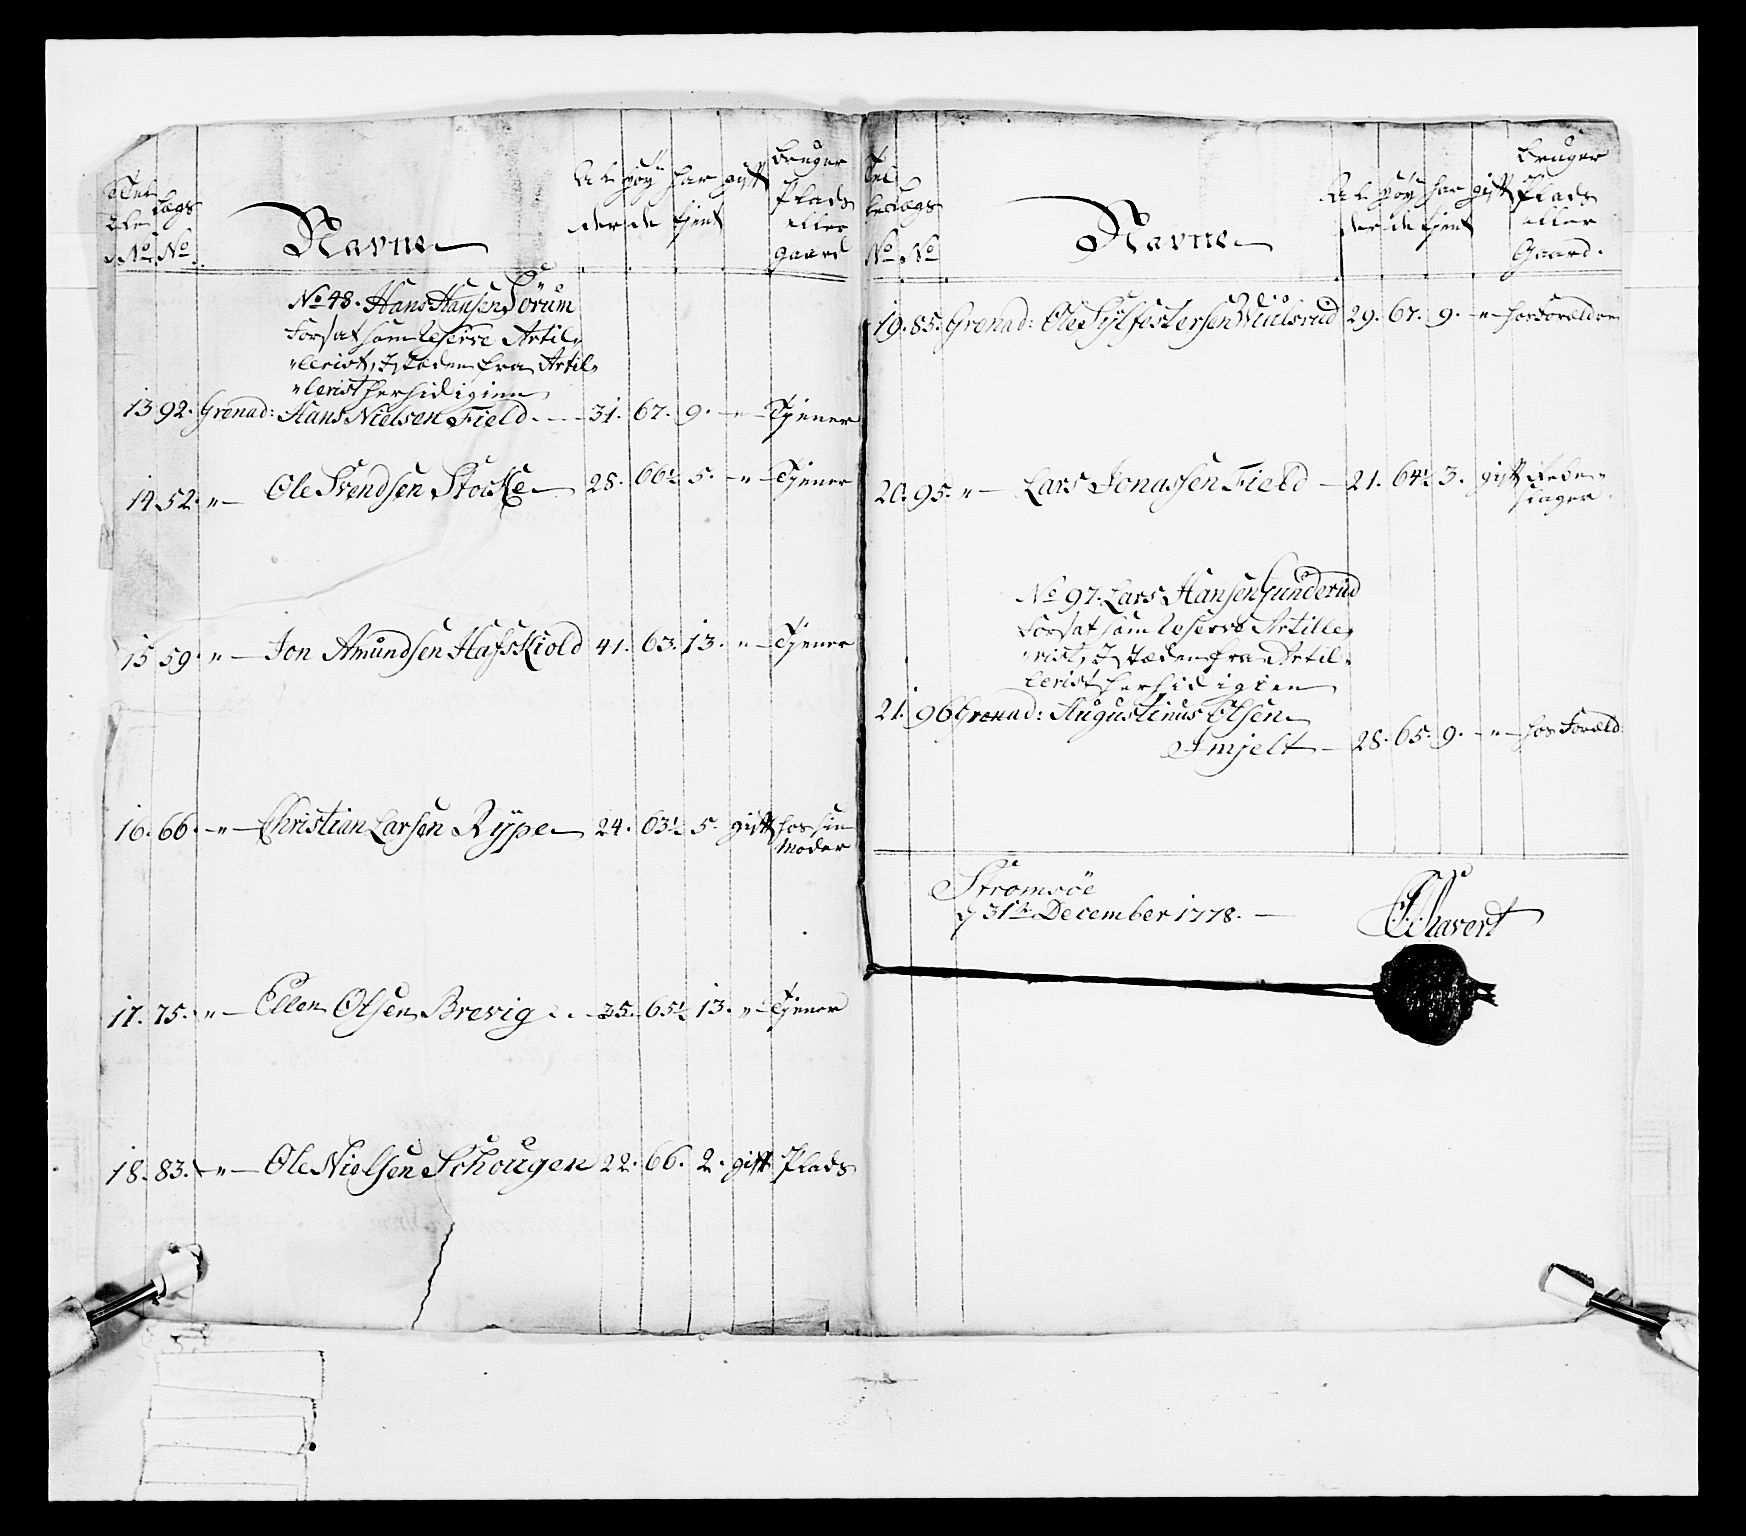 Lægs
No No
Navne
Al der
Høy de
har tient
gift
bruger Plads eller gaard
No 48. Hans Hansen Sörum
Forsat som Reserve Artil-
lerist, I steden fra Artil-
lerist herhid igien
13. 92. Grenad: Hans Nielsen Field 31. 67. 9. " Tjener
14. 52. " Ole Svendsen Stocke 28. 66½ 5. " Tjener
15. 59. " Jon Amundsen Hafskiold 41. 63. 13. " Tjener
16. 66. " Christian Larsen Rÿpe 24. 63½ 5. gift hos sin
Moder
17. 75. " Ellen Olsen Brevig 35. 65½ 13. " Tjener
18. 83. " Ole Nielsen Schougen 22. 66. 2. gift Plads
Lægs
No No
Navne
Al der
høy de
har tient
gift
bruger Plads eller Gaard.
19. 85. Grenad: Ole Sylfestersen 29. 67. 9. " hos Forældre
20. 95. " Lars Jonassen Field 21. 64½ 3. gift
No 97. Lars Hansen Gunderud
Forsat som Reserve Artille-
rist, I steden fra Artil-
lerist herhid igien
21. 96 Grenad: Augustinus Olsen
Imjelt 28. 65. 9. " hos Foræld:
Strömsöe
d 31te December 1778.